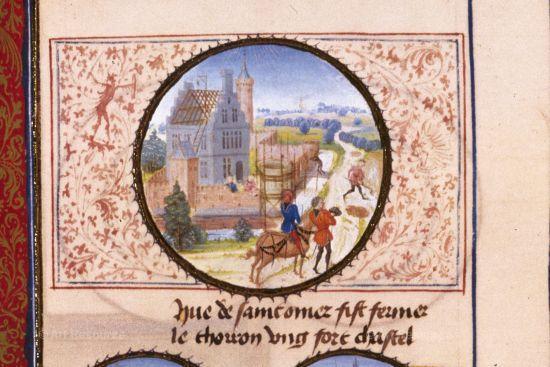 Hue de saintomer fist fermer
le thoron ung fort chastel